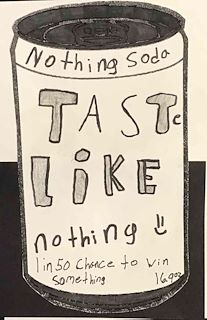 Nothing Soda
TASTe
LiKE
nothing
1 in 50 Chance to win
something
16.9oz